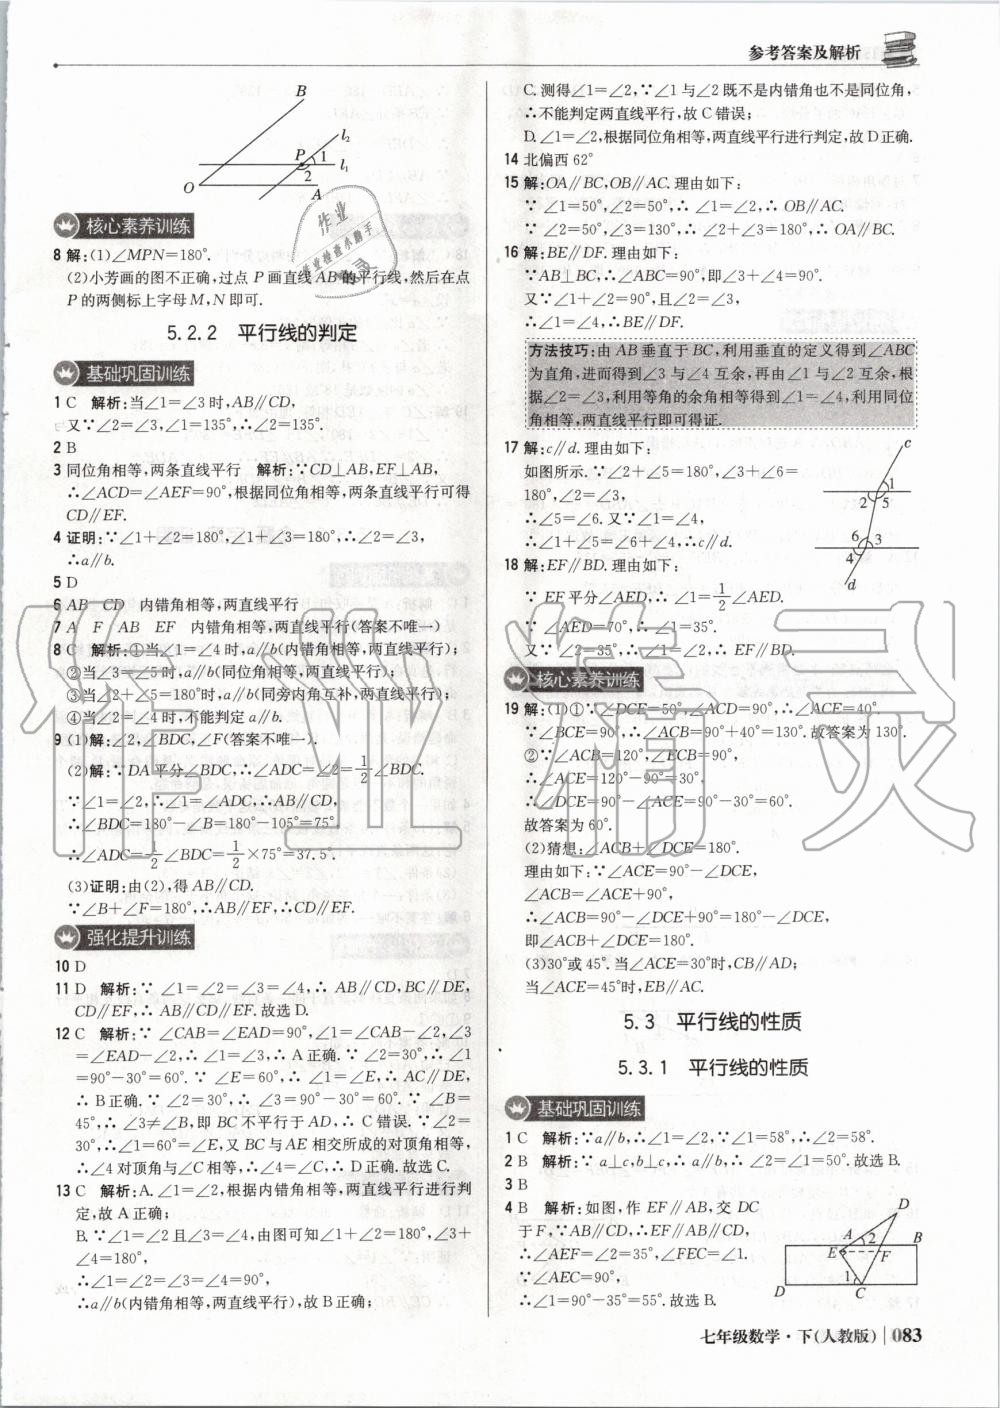 参考答案及解析
B
l₂
P 1
l₁
2
O A
核心素养训练
8 解:(1)∠MPN=180°.
(2)小芳画的图不正确,过点 P 画直线 AB 的平行线,然后在点
P 的两侧标上字母 M,N 即可.
5.2.2 平行线的判定
基础巩固训练
1 C 解析:当∠1=∠3时,AB∥CD,
又∵∠2=∠3,∠1=135°,∴∠2=135°.
2 B
3 同位角相等,两条直线平行 解析:∵CD⊥AB,EF⊥AB,
∴∠ACD=∠AEF=90°,根据同位角相等,两条直线平行可得
CD∥EF.
4 证明:∵∠1+∠2=180°,∠1+∠3=180°,∴∠2=∠3,
∴a∥b.
5 D
6 AB CD 内错角相等,两直线平行
7 A F AB EF 内错角相等,两直线平行(答案不唯一)
8 C 解析:①当∠1=∠4时,a∥b(内错角相等,两直线平行);
②当∠3=∠5时,a∥b(同位角相等,两直线平行);
③当∠2+∠5=180°时,a∥b(同旁内角互补,两直线平行);
④当∠2=∠4时,不能判定a∥b.
9 (1)解:∠2,∠BDC,∠F(答案不唯一).
(2)解:∵DA平分∠BDC,∴∠ADC=∠2=1/2∠BDC.
∵∠1=∠2,∴∠1=∠ADC,∴AB∥CD,
∴∠BDC=180°-∠B=180°-105°=75°,
∴∠ADC=1/2∠BDC=1/2×75°=37.5°.
(3)证明:由(2),得AB∥CD.
∵∠B+∠F=180°,∴AB∥EF,∴CD∥EF.
强化提升训练
10 D
11 D 解析:∵∠1=∠2=∠3=∠4,∴AB∥CD,BC∥DE,
CD∥EF,∴AB∥CD∥EF.故选D.
12 C 解析:∵∠CAB=∠EAD=90°,∠1=∠CAB-∠2,∠3
=∠EAD-∠2,∴∠1=∠3,∴A正确.∵∠2=30°,∴∠1
=90°-30°=60°.∵∠E=60°,∴∠1=∠E,∴AC∥DE,
∴B正确.∵∠2=30°,∴∠3=90°-30°=60°.∵∠B=
45°,∴∠3≠∠B,即BC不平行于AD,∴C错误.∵∠2=
30°,∴∠1=60°=∠E,又BC与AE相交所成的对顶角相等,
∴∠4对顶角与∠C相等,∴∠4=∠C,∴D正确.故选C.
13 C 解析:A.∠1=∠2,根据内错角相等,两直线平行进行判
定,故A正确;
B.∵∠1=∠2且∠3=∠4,由图可知∠1+∠2=180°,∠3+
∠4=180°,
∴∠1=∠2=∠3=∠4=90°,
∴a∥b(内错角相等,两直线平行),故B正确;
C.测得∠1=∠2,∵∠1与∠2既不是内错角也不是同位角,
∴不能判定两直线平行,故C错误;
D.∠1=∠2,根据同位角相等,两直线平行进行判定,故D正确.
14 北偏西62°
15 解:OA∥BC,OB∥AC.理由如下:
∵∠1=50°,∠2=50°,∴∠1=∠2,∴OB∥AC.
∵∠2=50°,∠3=130°,∴∠2+∠3=180°,∴OA∥BC.
16 解:BE∥DF.理由如下:
∵AB⊥BC,∴∠ABC=90°,即∠3+∠4=90°.
又∵∠1+∠2=90°,且∠2=∠3,
∴∠1=∠4,∴BE∥DF.
方法技巧:由AB垂直于BC,利用垂直的定义得到∠ABC
为直角,进而得到∠3与∠4互余,再由∠1与∠2互余,根
据∠2=∠3,利用等角的余角相等得到∠1=∠4,利用同位
角相等,两直线平行即可得证.
17 解:c∥d.理由如下:
如图所示.∵∠2+∠5=180°,∠3+∠6=
180°,∠2=∠3,
∴∠5=∠6.又∵∠1=∠4,
∴∠1+∠5=∠6+∠4,∴c∥d.
c
1
2 5
6 3
4
d
18 解:EF∥BD.理由如下:
∵EF平分∠AED,∴∠1=1/2∠AED.
∵∠AED=70°,∴∠1=35°.
又∵∠2=35°,∴∠1=∠2,∴EF∥BD.
核心素养训练
19 解:(1)①∵∠DCE=50°,∠ACD=90°,∴∠ACE=40°.
∵∠BCE=90°,∴∠ACB=90°+40°=130°.故答案为130°.
②∵∠ACB=120°,∠ECB=90°,
∴∠ACE=120°-90°=30°,
∴∠DCE=90°-∠ACE=90°-30°=60°.
故答案为60°.
(2)猜想:∠ACB+∠DCE=180°.
理由如下:∵∠ACE=90°-∠DCE,
∠ACB=∠ACE+90°,
∴∠ACB=90°-∠DCE+90°=180°-∠DCE,
即∠ACB+∠DCE=180°.
(3)30°或45°.当∠ACE=30°时,CB∥AD;
当∠ACE=45°时,EB∥AC.
5.3 平行线的性质
5.3.1 平行线的性质
基础巩固训练
1 C 解析:∵a∥b,∴∠1=∠2,∵∠1=58°,∴∠2=58°.
2 B 解析:∵a⊥c,b⊥c,∴a∥b,∴∠2=∠1=50°.故选B.
3 B
4 B 解析:如图,作EF∥AB,交DC
于F,∵AB∥CD,∴EF∥AB∥CD,
∴∠AEF=∠2=35°,∠FEC=∠1.
∵∠AEC=90°,
∴∠1=90°-35°=55°.故选B.
D
A 2 B
E F
1
D C
七年级数学·下(人教版) 083
作业精灵